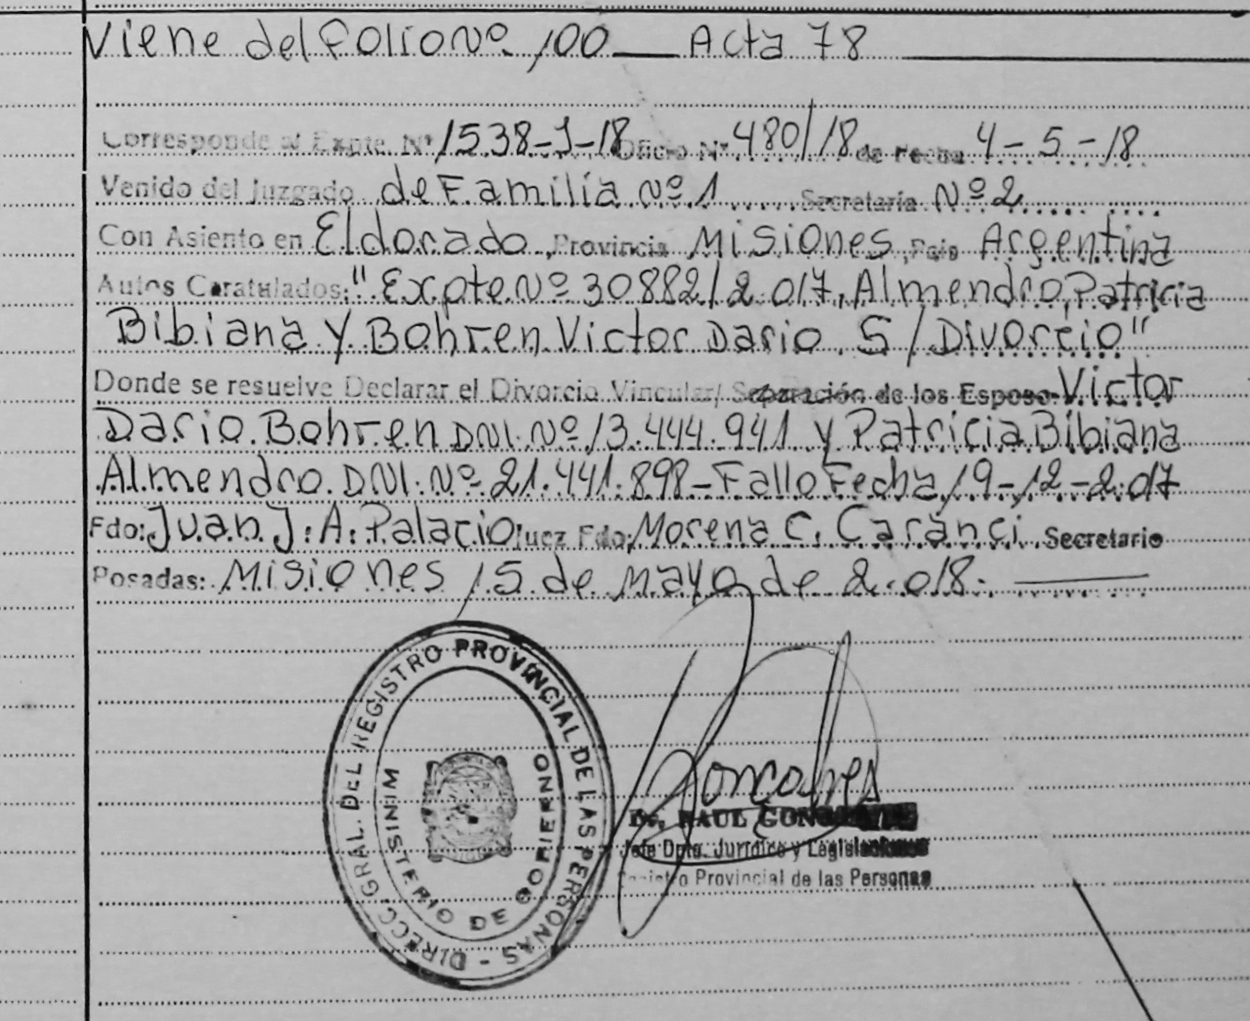 Viene del folio Nº 100 — Acta 78
Corresponde al Expte. Nº 1538-J-18 Oficio Nº 480/18 de Fecha 4-5-18
Venido del Juzgado de Familia Nº 1 Secretaría Nº 2
Con Asiento en Eldorado, Provincia Misiones, País Argentina
Autos Caratulados: "Expte Nº 30882/2.017, Almendro, Patricia
Bibiana y Bohren Victor Dario S/ Divorcio"
Donde se resuelve Declarar el Divorcio Vincular/ Separación de los Esposo: Victor
Dario Bohren DNI. Nº 13.444.941 y Patricia Bibiana
Almendro. DNI. Nº 21.441.898 - Fallo Fecha 19-12-2.017
Fdo: Juan J. A. Palacio Juez Fdo: Morena C. Caranci Secretario
Posadas: Misiones 15 de mayo de 2.018.
DIRECC. GRAL. DEL REGISTRO PROVINCIAL DE LAS PERSONAS -
MINISTERIO DE GOBIERNO
Goncalves
Dr. RAUL
Jefe Dpto. Jurídico y
Registro Provincial de las Personas